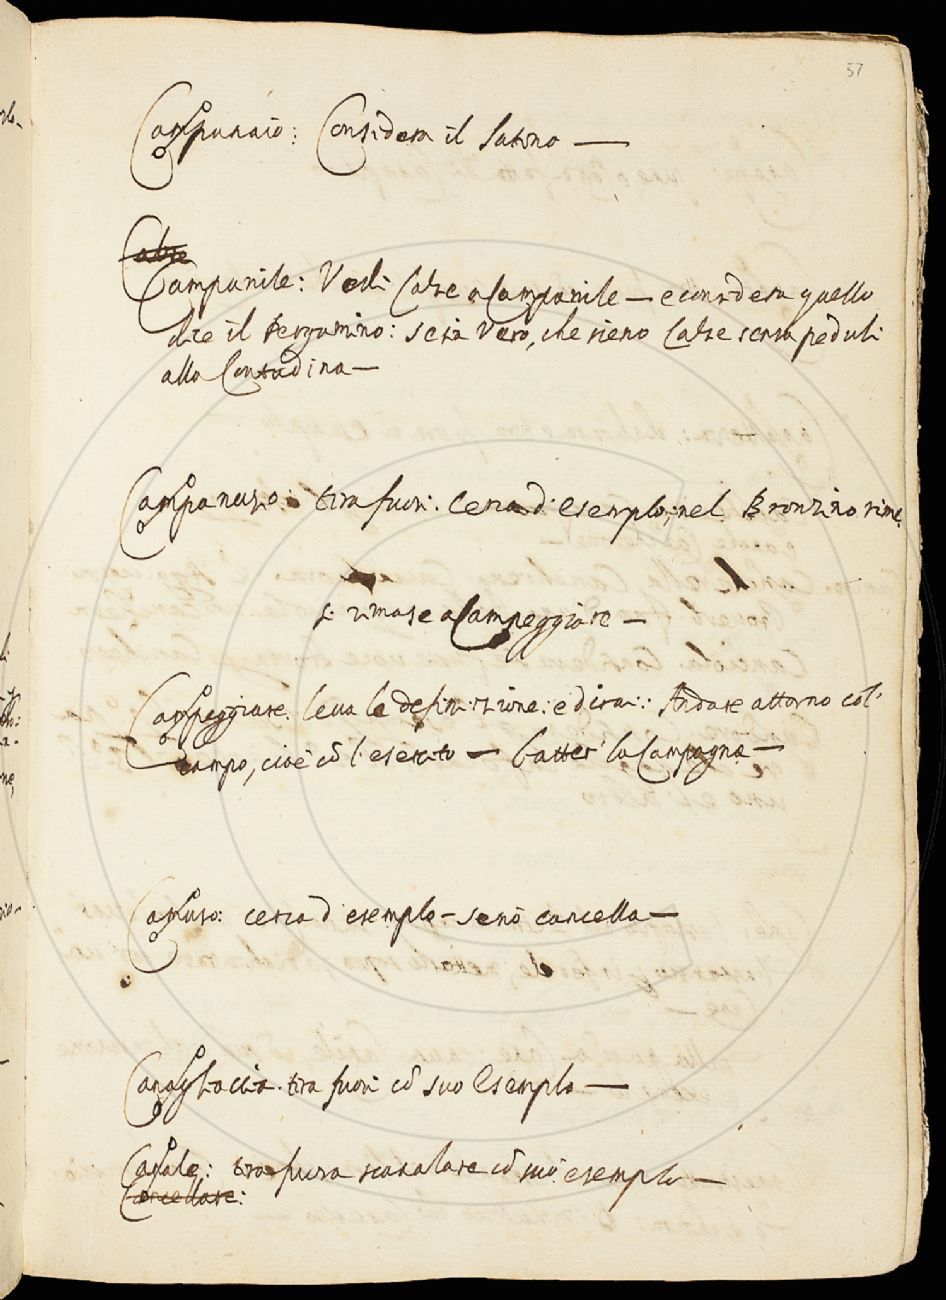 57
Campanaio: Considera il latino —
Calze
Campanile: Vedi Calze a Campanile — e considera quello
dice il Pergamino: se sia vero, che sieno Calze senza peduli
alla Contadina —
Campanuzo: tira fuori. Cerca d'esemplo, nel Bronzino rime
si rimase a Campeggiare —
Campeggiare. leva le definizione: e dirai: Andare attorno col
campo, cioè cō l'esercito — batter la Campagna —
cerca d'esemplo — se nō cancella —
Canagliaccia. tira fuori cō suo Esemplo —
Canale: tira fuora scanalare cō suo esemplo —
Cancellare: